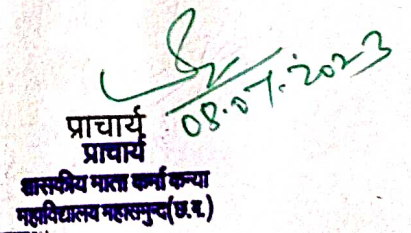 08.07.2023
प्राचार्य
प्राचार्य
शासकीय माता कर्मा कन्या
महाविद्यालय महासमुन्द (छ.ग.)